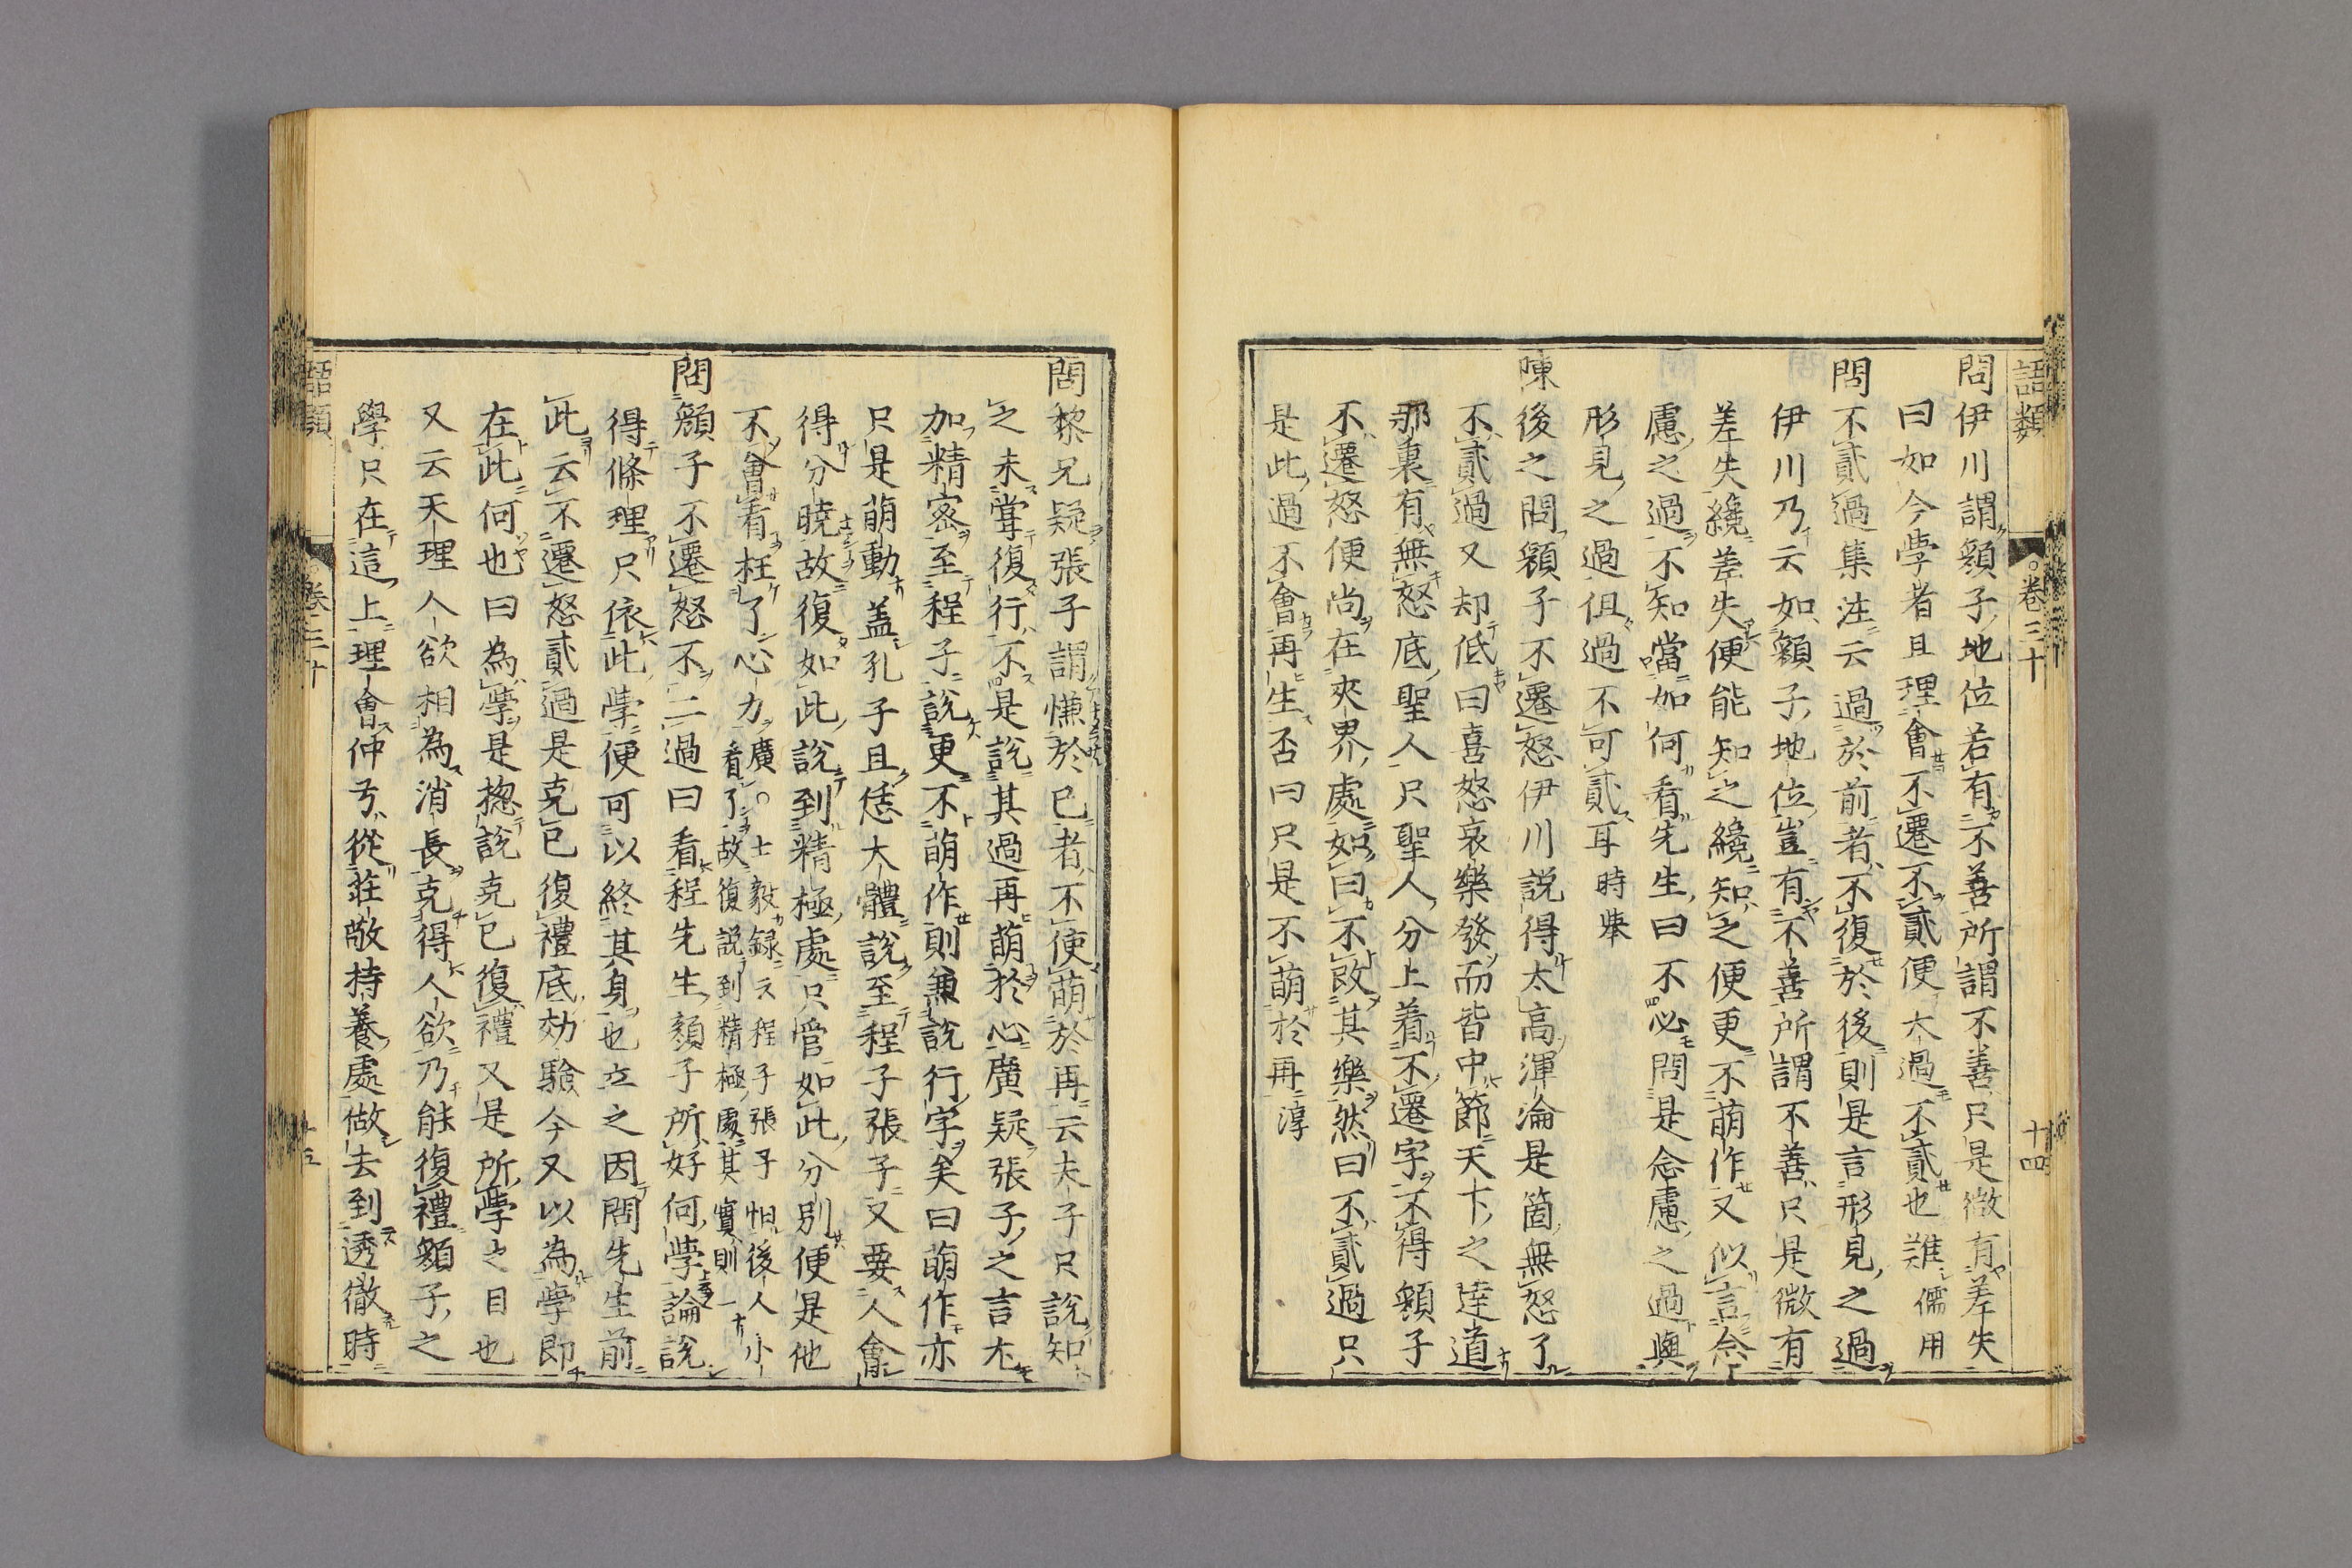 語類
卷三十
十四
問伊川謂顏子地位若有不善所謂不善只是微有差失
曰如今學者且理會不遷不貳便大過不貳也難儒用
問不貳過集注云過於前者不復於後則是言形見之過
伊川乃云如顏子地位豈有不善所謂不善只是微有
差失纔差失便能知之纔知之便更不萌作又似言念
慮之過不知當如何看先生曰不必問是念慮之過與
形見之過但過不可貳耳時舉
陳後之問顏子不遷怒伊川說得太高渾淪是箇無怒了
不貳過又却低曰喜怒哀樂發而皆中節天下之達道
那裏有無怒底聖人只聖人分上着不遷字不得顏子
不遷怒便尚在夾界處如曰不改其樂然曰不貳過只
是此過不會再生否曰只是不萌於再淳
問黎兄疑張子謂慊於己者不使萌於再云夫子只說知
之未嘗復行不是說其過再萌於心廣疑張子之言尤
加精密至程子說更不萌作則兼說行字矣曰萌作亦
只是萌動蓋孔子且恁大體說至程子張子又要人會
得分曉故復如此說到精極處只管如此分別便是他
不會看枉了心力廣。士毅録云程子張子怕後人小
看了故復説到精極處其實則一
問顏子不遷怒不二過曰看程先生顏子所好何學論說
得條理只依此學便可以終其身也立之因問先生前
此云不遷怒貳過是克己復禮底効驗今又以為學即
在此何也曰為學是揔說克己復禮又是所學之目也
又云天理人欲相為消長克得人欲乃能復禮顏子之
學只在這上理會仲弓從莊敬持養處做去到透徹時
語類
卷三十
十五